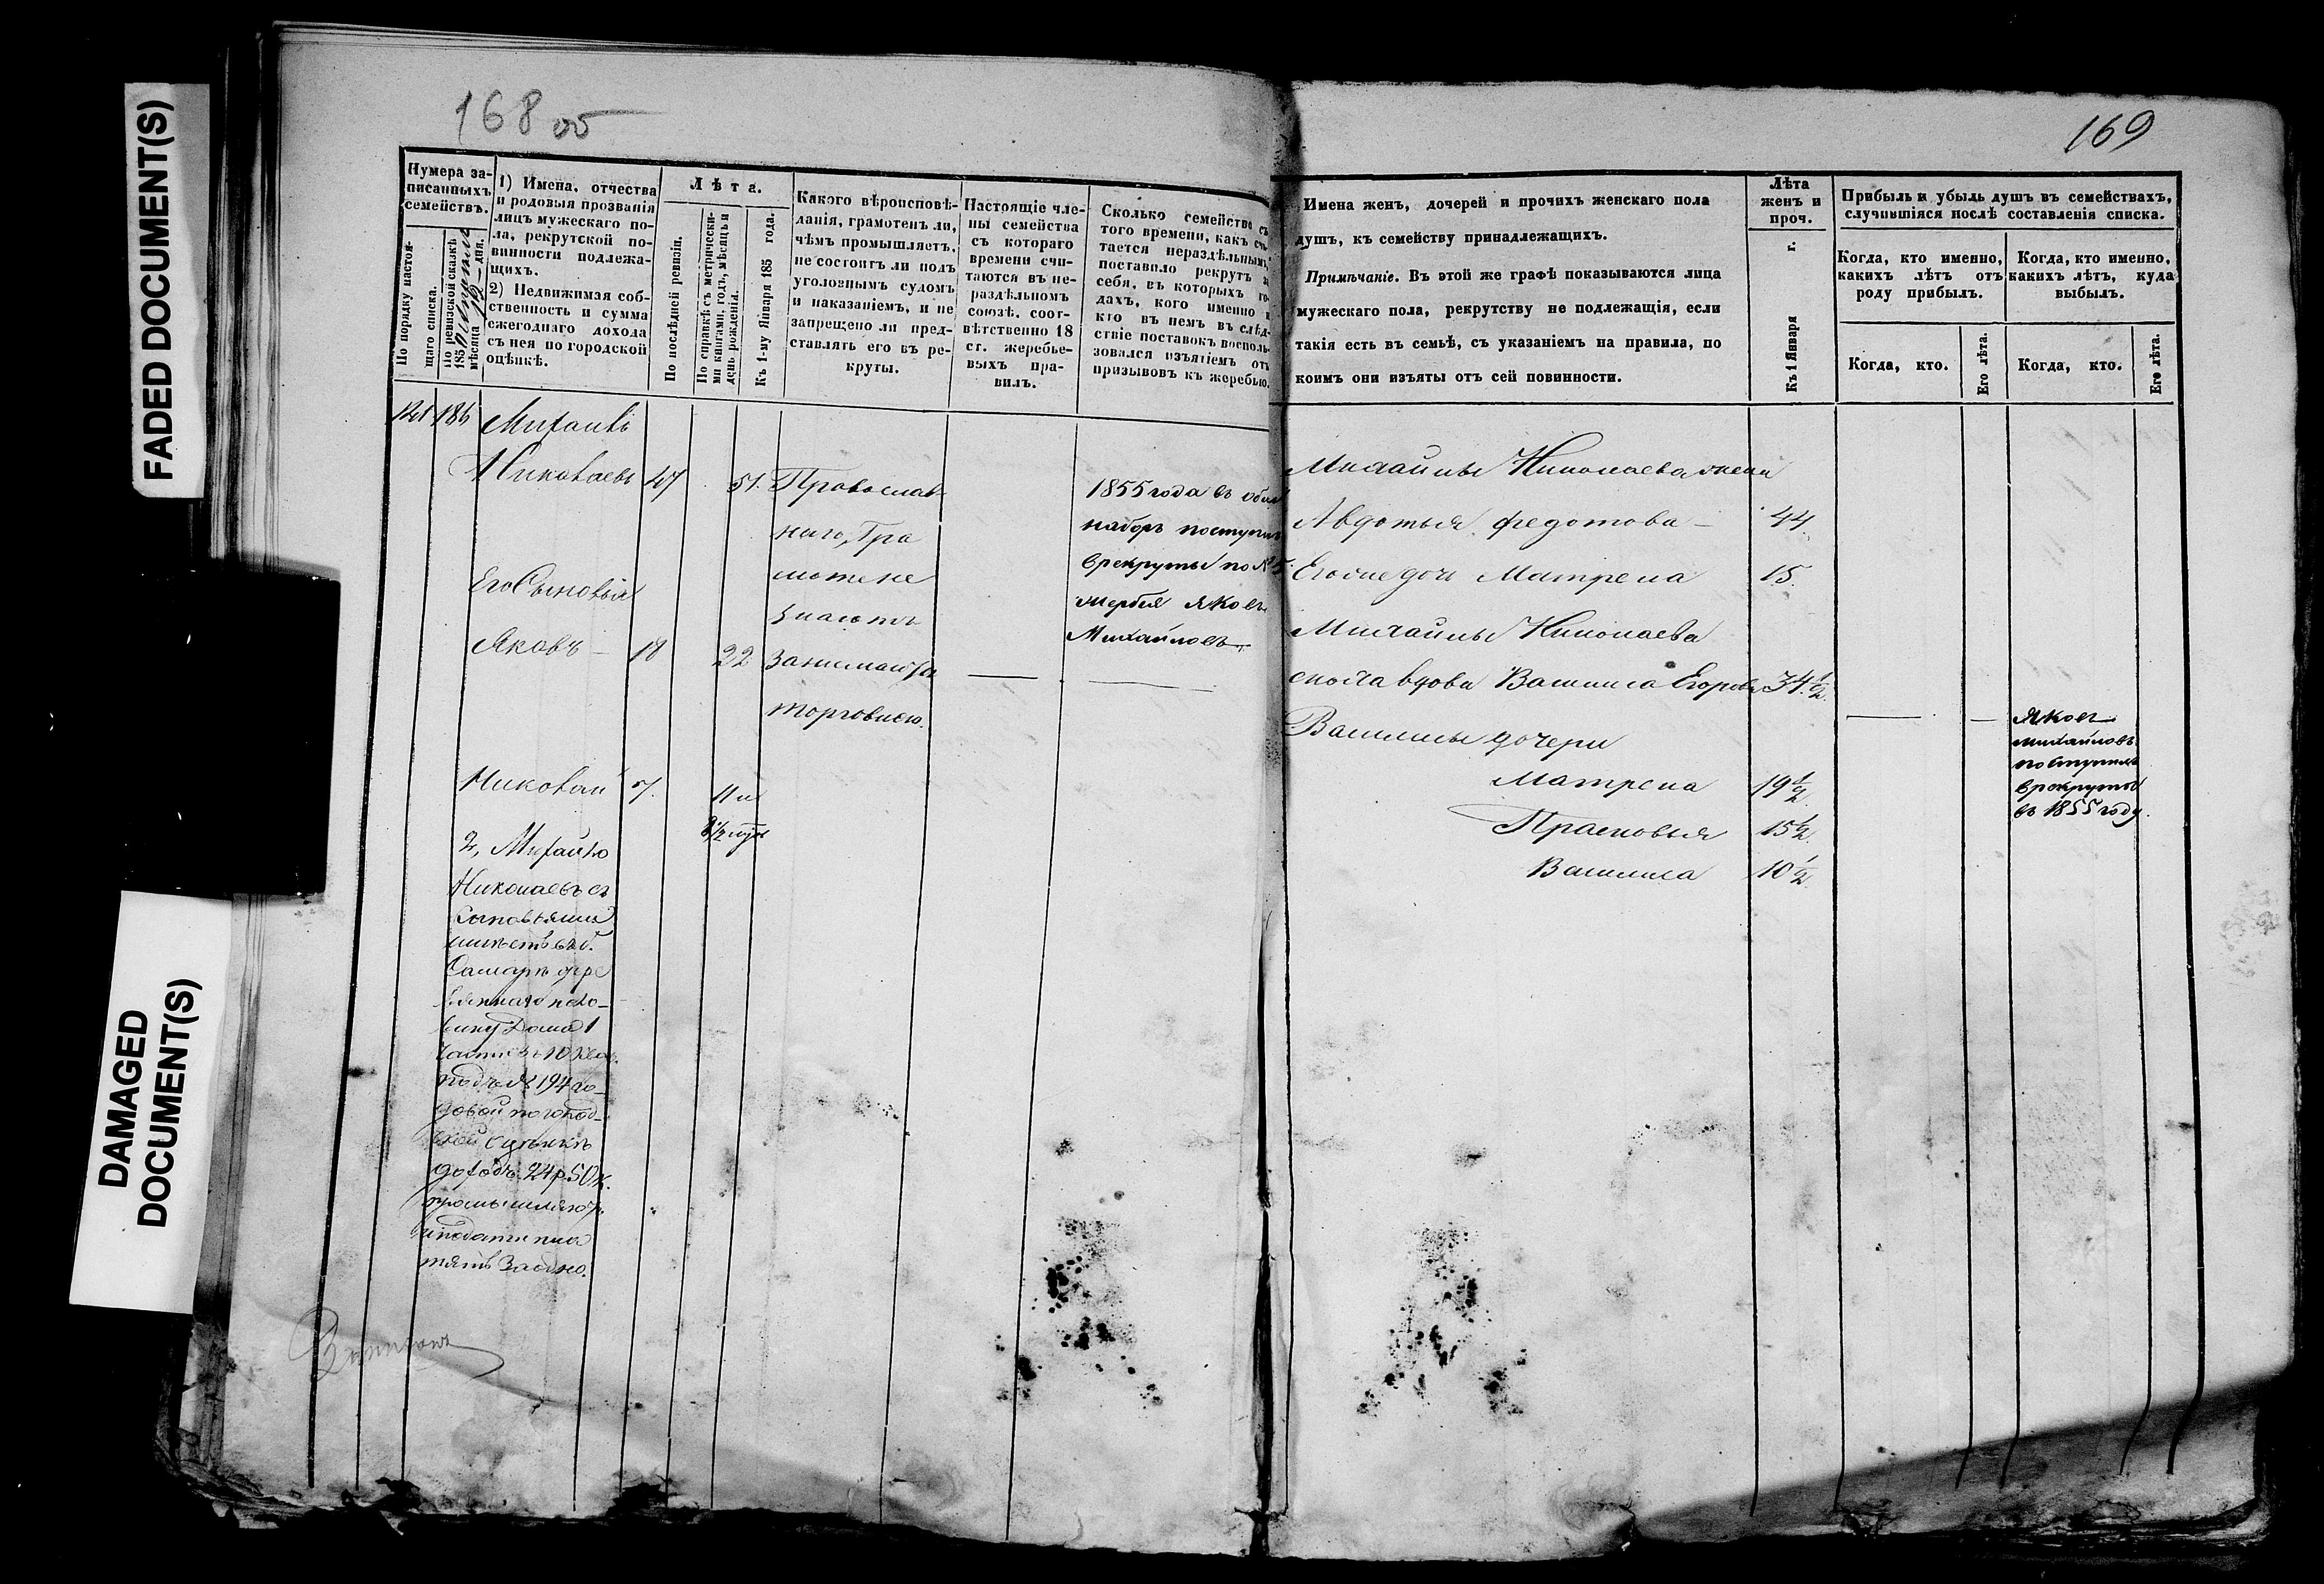 FADED DOCUMENT(S)
DAMAGED
DOCUMENT(S)
168 об
Нумера за-
писанныхъ
семействъ.
По порядку настоя-
щаго списка.
По ревизской сказкѣ
185
мѣсяца дня.
1) Имена, отчества
и родовыя прозванія
лицъ мужескаго по-
ла, рекрутской по-
винности подлежа-
щихъ.
2) Недвижимая соб-
ственность и сумма
ежегоднаго дохода
съ нея по городской
оцѣнкѣ.
Лѣта.
По послѣдней ревизіи.
По справкѣ съ метрически-
ми книгами, годъ, мѣсяцъ и
день рожденія.
Къ 1-му Января 185 года.
Какого вѣроисповѣ-
данія, грамотенъ ли,
чѣмъ промышляетъ,
не состоитъ ли подъ
уголовнымъ судомъ
и наказаніемъ, и не
запрещено ли пред-
ставлять его въ ре-
круты.
Настоящіе чле-
ны семейства
съ котораго
времени счи-
таются въ не-
раздѣльномъ
союзѣ, соот-
вѣтственно 18
ст. жеребье-
выхъ пра-
вилъ.
Сколько семейство съ
того времени, какъ счи-
тается нераздѣльнымъ,
поставило рекрутъ за
себя, въ которыхъ го-
дахъ, кого именно и
кто въ немъ въ слѣд-
ствіе поставокъ восполь-
зовался изъятіемъ отъ
призывовъ къ жеребью.
186 Михаилъ
Николаевъ 47 51. Православ-
наго, Гра
мотѣ не
знаютъ
Занимаются
торговлею.
1855 года въ общ
наборъ поступилъ
в рекруты по № 5
жеребья Яковъ
Михайловъ
Его Сыновья
Яковъ 18 22
Николай 7. 11 и
2, Михайло
Николаевъ съ
Сыновьями
имѣетъ въ г.
Самарѣ дере
вяннаго поло-
вину Дома 1
части въ 10 квар.
подъ № 194 го-
довой по город-
ской оцѣнкѣ
доходъ 24 р. 50 к.
промышляютъ
и подати пла
тятъ Заодно.
169
Имена женъ, дочерей и прочихъ женскаго пола
душъ, къ семейству принадлежащихъ.
Примѣчаніе. Въ этой же графѣ показываются лица
мужескаго пола, рекрутству не подлежащія, если
такія есть въ семьѣ, съ указаніемъ на правила, по
коимъ они изъяты отъ сей повинности.
Лѣта
женъ и
проч.
Къ 1 Января г.
Прибыль и убыль душъ въ семействахъ,
случившіяся послѣ составленія списка.
Когда, кто именно,
какихъ лѣтъ отъ
роду прибылъ.
Когда, кто именно,
какихъ лѣтъ, куда
выбылъ.
Когда, кто.
Его лѣта.
Когда, кто.
Его лѣта.
Михайлы Николаева жена
Авдотья Федотова - 44.
Его же дочь Матрена 15.
Михайлы Николаева
сноха вдова Василиса Егорова 34 1/2.
Василисы дочери
Матрена 19 1/2
Прасковья 15 1/2.
Василиса 10 1/2.
Яковъ
Михайловъ
поступилъ
в рекруты
въ 1855 году.